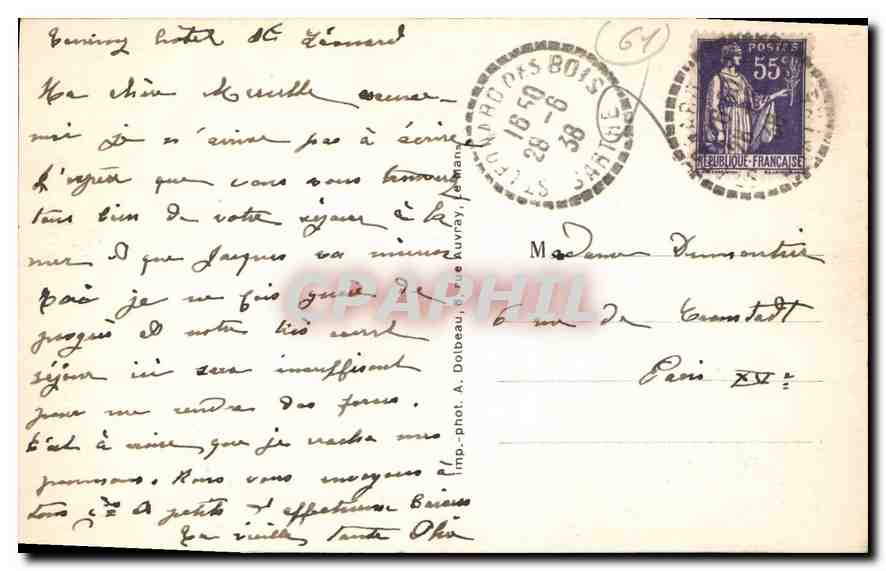 Touring hôtel St Léonard
Ma chère Marcelle excuse
moi je n'aime pas à écrire
J'espère que vous vous trouvez
tous bien de votre séjour à la
mer et que Jacques va mieux
je ne fais guère de
progrès et notre très court
séjour ici sera insuffisant
pour me rendre des forces.
C'est à croire que je
poumons. Nous vous envoyons à
tous petits d'affectueux baisers
Ta vieille tante
Imp.-phot. A. Dolbeau, rue Auvray, Le Mans
ST LEONARD DES BOIS
16 50
28 -6
38
SARTHE
61
POSTES
55c
REPUBLIQUE-FRANÇAISE
Madame Dumontier
6 rue de Cronstadt
Paris XVe
CPAPHIL